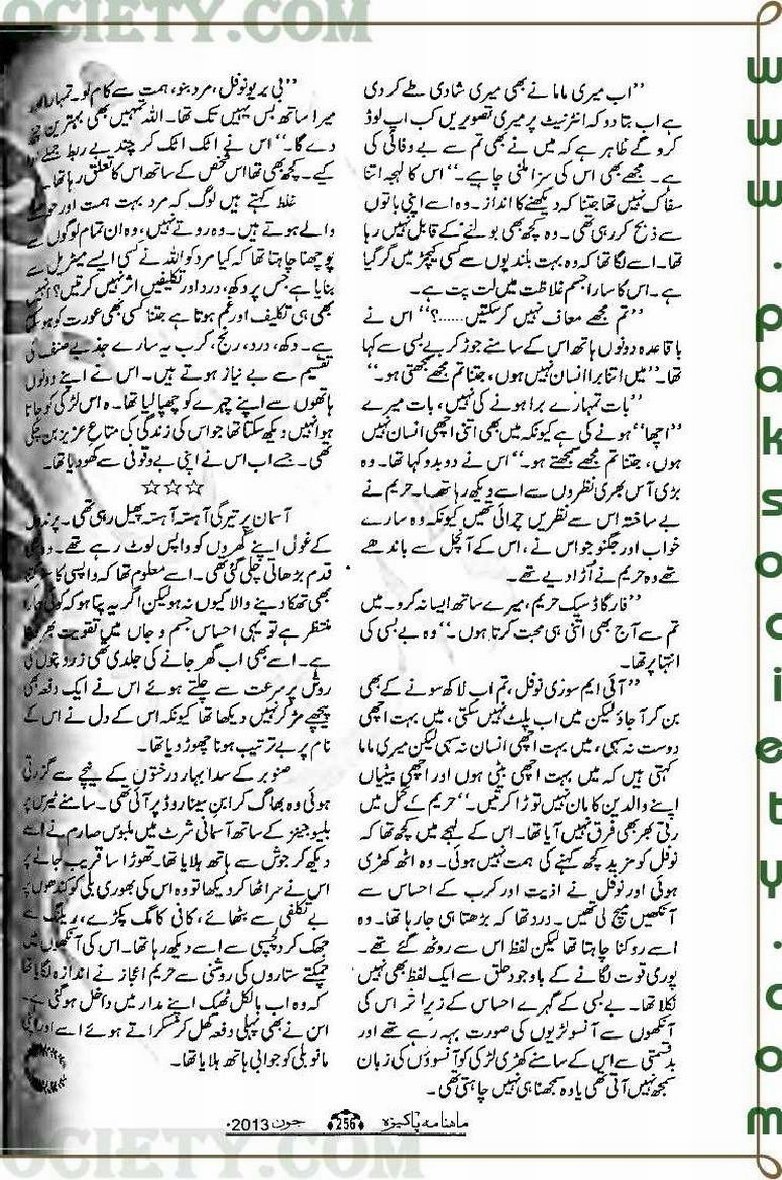 OCIETY.COM
"اب میری ماما نے بھی میری شادی طے کر دی
ہے اب بتا دو کہ انٹرنیٹ پر میری تصویریں کب اپ لوڈ
کرو گے ظاہر ہے کہ میں نے بھی تم سے بے وفائی کی
ہے۔ مجھے بھی اس کی سزا ملنی چاہیے۔" اس کا لہجہ اتنا
سفاک نہیں تھا جتنا کہ دیکھنے کا انداز۔ وہ اسے اپنی باتوں
سے ذبح کر رہی تھی۔ وہ کچھ بھی بولنے کے قابل نہیں رہا
تھا۔ اسے لگا تھا کہ وہ بہت بلندیوں سے کسی کیچڑ میں گر گیا
ہے۔ اس کا سارا جسم غلاظت میں لت پت ہے۔
"تم مجھے معاف نہیں کر سکتیں......؟" اس نے
باقاعدہ دونوں ہاتھ اس کے سامنے جوڑ کر بے بسی سے کہا
تھا۔ "میں اتنا برا انسان نہیں ہوں، جتنا تم مجھے سمجھتی ہو۔"
"بات تمہارے برا ہونے کی نہیں، بات میرے
"اچھا" ہونے کی ہے کیونکہ میں بھی اتنی اچھی انسان نہیں
ہوں، جتنا تم مجھے سمجھتے ہو۔" اس نے دوبدو کہا تھا۔ وہ
بڑی آس بھری نظروں سے اسے دیکھ رہا تھا۔ حریم نے
بے ساختہ اس سے نظریں چرائی تھیں کیونکہ وہ سارے
خواب اور جگنو جو اس نے، اس کے آنچل سے باندھے
تھے وہ حریم نے اڑا دیے تھے۔
"فار گاڈ سیک حریم، میرے ساتھ ایسا نہ کرو۔ میں
تم سے آج بھی اتنی ہی محبت کرتا ہوں۔" وہ بے بسی کی
انتہا پر تھا۔
"آئی ایم سوری نوفل، تم اب لاکھ سونے کے بھی
بن کر آ جاؤ لیکن میں اب پلٹ نہیں سکتی، میں بہت اچھی
دوست نہ سہی، میں بہت اچھی انسان نہ سہی لیکن میری ماما
کہتی ہیں کہ میں بہت اچھی بیٹی ہوں اور اچھی بیٹیاں
اپنے والدین کا مان نہیں توڑا کرتیں۔" حریم کے تحمل میں
رتی بھر بھی فرق نہیں آیا تھا۔ اس کے لہجے میں کچھ تھا کہ
نوفل کو مزید کچھ کہنے کی ہمت نہیں ہوئی۔ وہ اٹھ کھڑی
ہوئی اور نوفل نے اذیت اور کرب کے احساس سے
آنکھیں میچ لی تھیں۔ درد تھا کہ بڑھتا ہی جا رہا تھا۔ وہ
اسے روکنا چاہتا تھا لیکن لفظ اس سے روٹھ گئے تھے۔
پوری قوت لگانے کے باوجود حلق سے ایک لفظ بھی نہیں
نکلا تھا۔ بے بسی کے گہرے احساس کے زیر اثر اس کی
آنکھوں سے آنسو لڑیوں کی صورت بہہ رہے تھے اور
بدقسمتی سے اس کے سامنے کھڑی لڑکی کو آنسوؤں کی زبان
سمجھ نہیں آتی تھی یا وہ سمجھنا ہی نہیں چاہتی تھی۔
"بی بریو نوفل، مرد بنو، ہمت سے کام لو۔ تمہارا
میرا ساتھ بس یہیں تک تھا۔ اللہ تمہیں بھی بہترین
دے گا۔" اس نے اٹک اٹک کر چند بے ربط جملے
کہے۔ کچھ بھی تھا اس شخص کے ساتھ اس کا تعلق رہا تھا۔
غلط کہتے ہیں لوگ کہ مرد بہت ہمت اور حوصلے
والے ہوتے ہیں۔ وہ روتے نہیں، وہ ان تمام لوگوں سے
پوچھنا چاہتا تھا کہ کیا مرد کو اللہ نے کسی ایسے میٹریل سے
بنایا ہے جس پر دکھ، درد اور تکلیفیں اثر نہیں کرتیں؟ انہیں
بھی ہی تکلیف اور غم ہوتا ہے جتنا کسی بھی عورت کو ہو سکتا
ہے۔ دکھ، درد، رنج، کرب یہ سارے جذبے صنف کی
تقسیم سے بے نیاز ہوتے ہیں۔ اس نے اپنے دونوں
ہاتھوں سے اپنے چہرے کو چھپا لیا تھا۔ وہ اس لڑکی کو جاتا
ہوا نہیں دیکھ سکتا تھا جو اس کی زندگی کی متاع عزیز بن چکی
تھی۔ جسے اب اس نے اپنی بے وقوفی سے کھو دیا تھا۔
☆☆☆
آسمان پر تیرگی آہستہ آہستہ پھیل رہی تھی۔ پرندوں
کے غول اپنے گھروں کو واپس لوٹ رہے تھے۔ وہ بھی
قدم بڑھاتی چلی گئی تھی۔ اسے معلوم تھا کہ واپسی کا سفر کتنا
بھی تھکا دینے والا کیوں نہ ہو لیکن اگر یہ پتا ہو کہ کوئی
منتظر ہے تو یہی احساس جسم و جاں میں تقویت بھر
ہے۔ اسے بھی اب گھر جانے کی جلدی تھی زرد پتوں کی
روش پر سرعت سے چلتے ہوئے اس نے ایک دفعہ بھی
پیچھے مڑ کر نہیں دیکھا تھا کیونکہ اس کے دل نے اس کے
نام پر بے ترتیب ہونا چھوڑ دیا تھا۔
صنوبر کے سدا بہار درختوں کے نیچے سے گزرتی
ہوئی وہ بھاگ کر ابن سینا روڈ پر آئی تھی۔ سامنے ٹیرس پر
بلیو جینز کے ساتھ آسمانی شرٹ میں ملبوس صارم نے اسے
دیکھ کر جوش سے ہاتھ ہلایا تھا۔ تھوڑا سا قریب جانے پر
اس نے سر اٹھا کر دیکھا تو وہ اس کی بھوری بلی کو کندھوں پر
بے تکلفی سے بٹھائے، کافی کا مگ پکڑے، ریلنگ سے
جھک کر دلچسپی سے اسے دیکھ رہا تھا۔ اس کی آنکھوں میں
چمکتے ستاروں کی روشنی سے حریم اعجاز نے اندازہ لگایا تھا
کہ وہ اب بالکل ٹھیک اپنے مدار میں داخل ہو گئی ہے۔
اس نے بھی پہلی دفعہ کھل کر مسکراتے ہوئے اسے اور اپنی
مانو بلی کو جوابی ہاتھ ہلایا تھا۔
ماہنامہ پاکیزہ 256 جون 2013ء
www.paksociety.com
OCIETY.COM